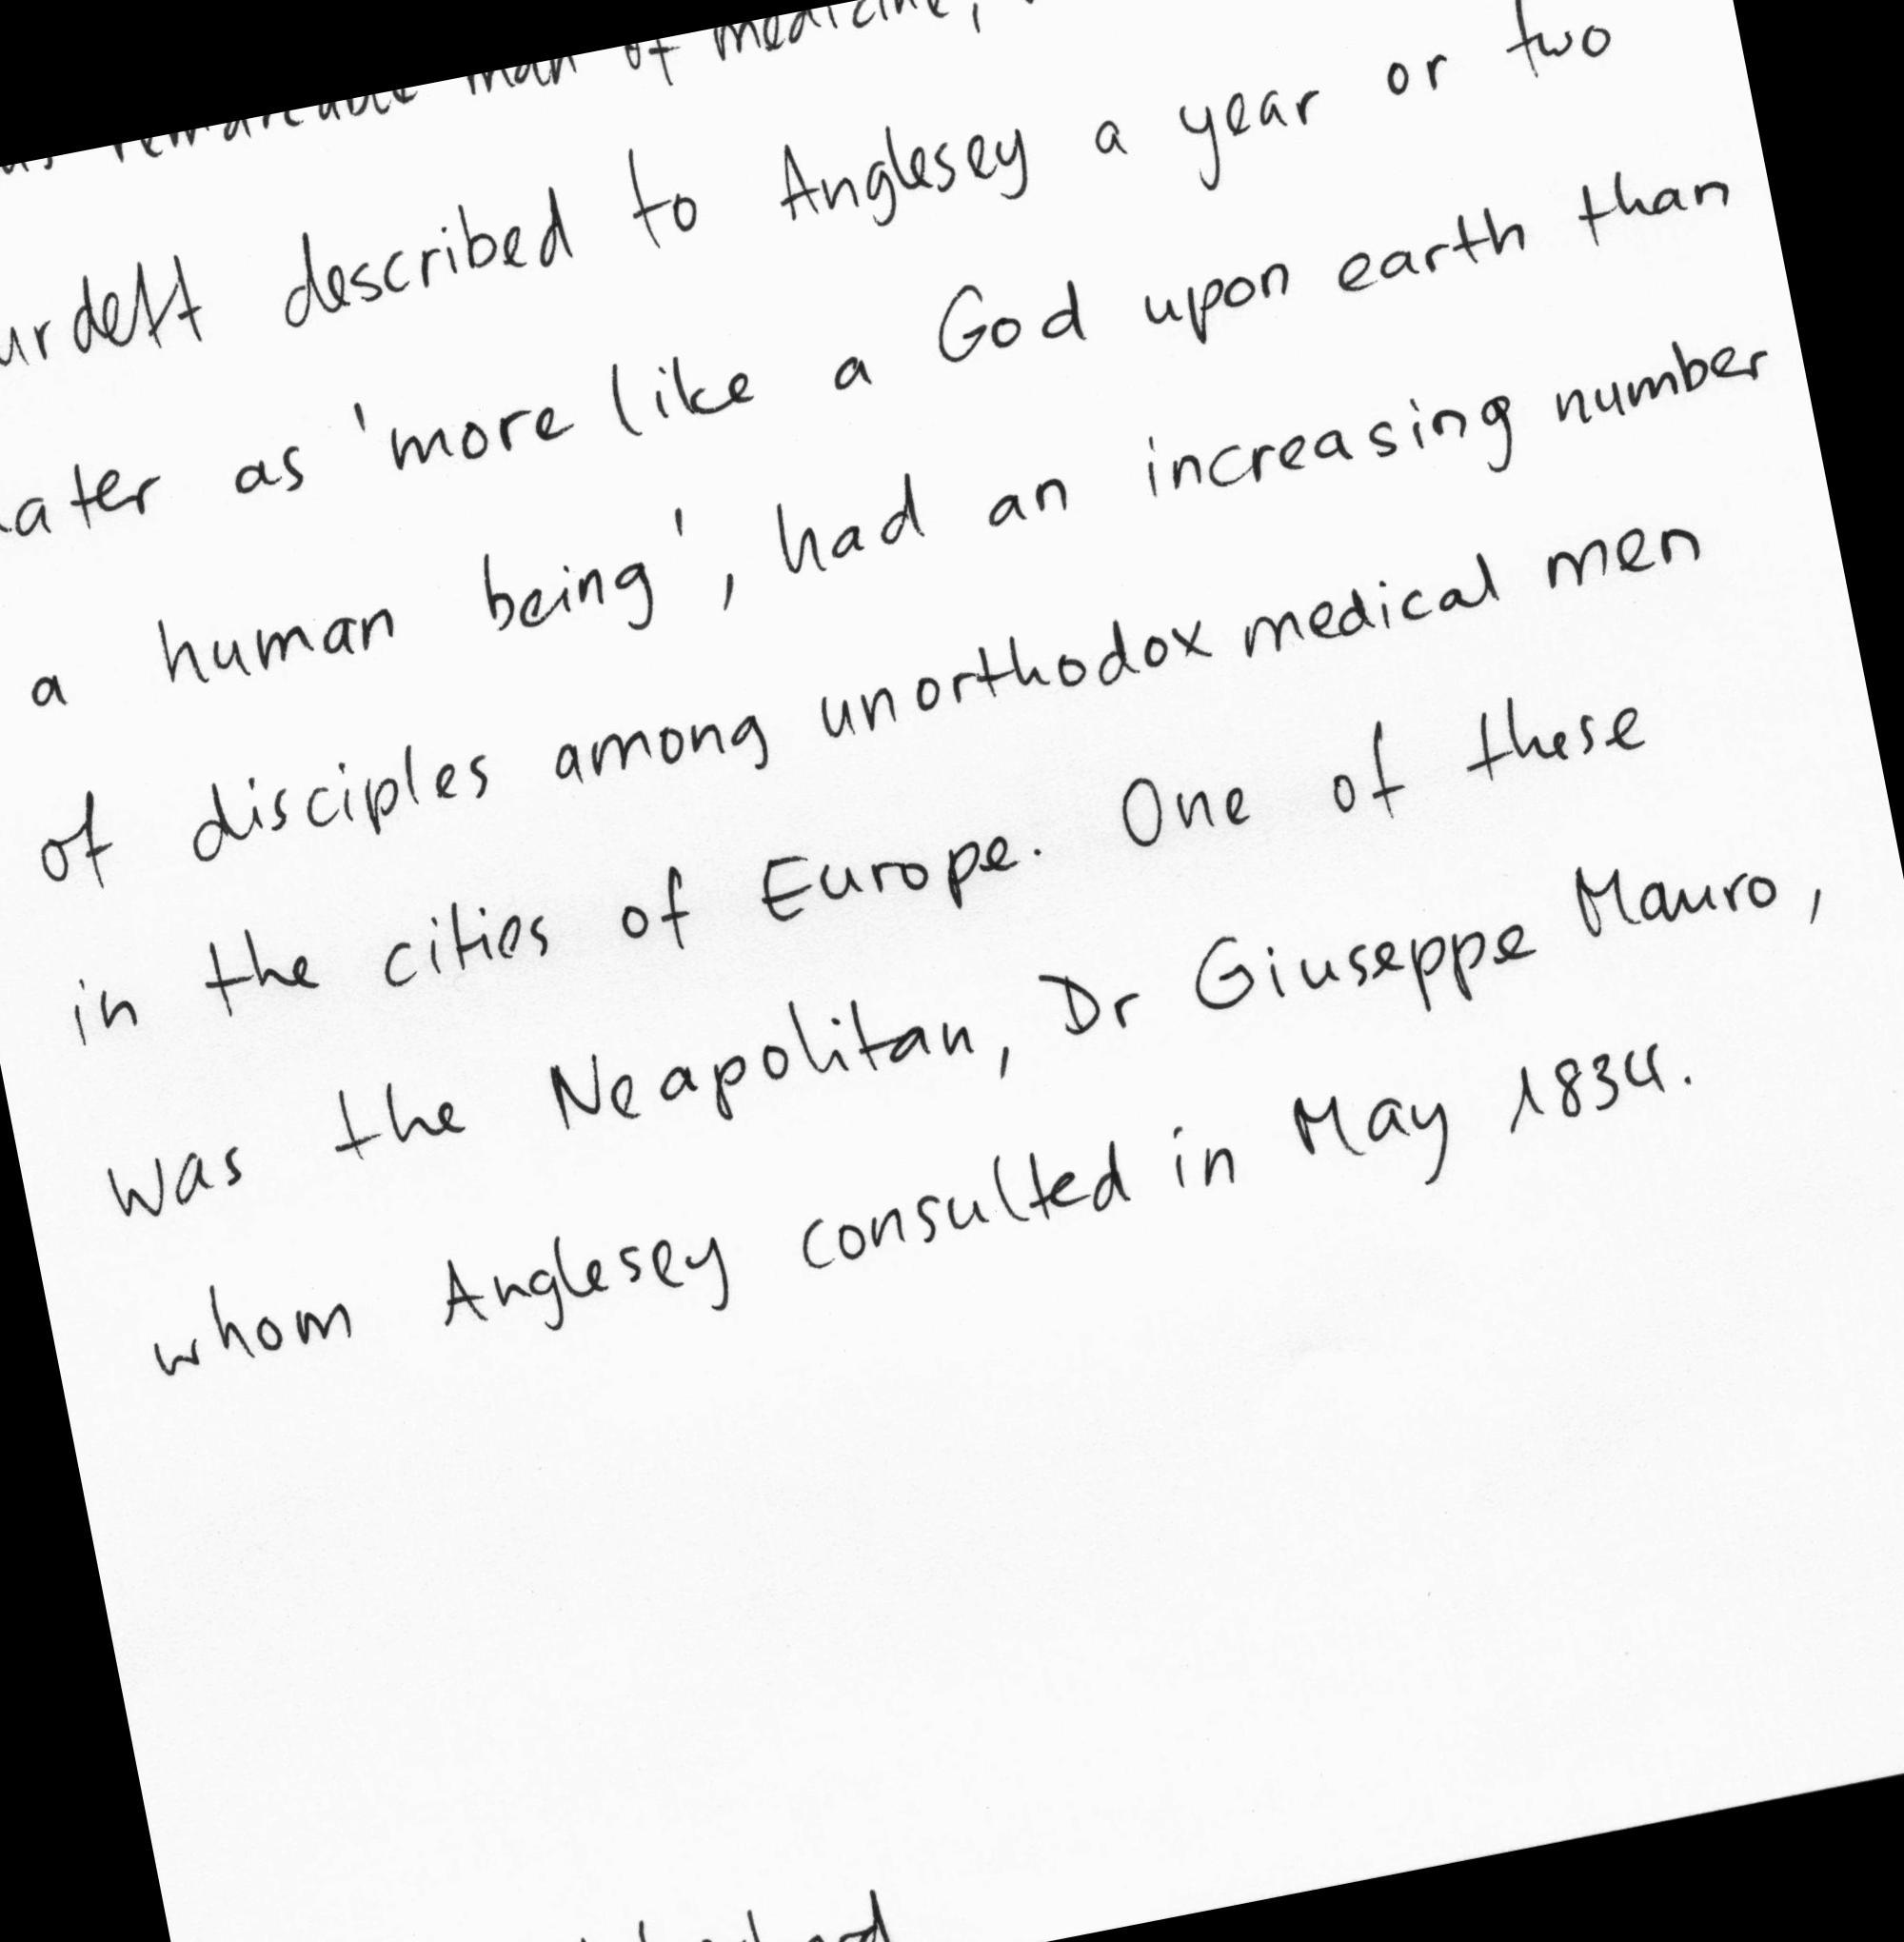 remarkable man of medicine,
described to Anglesey a year or two
as 'more like a God upon earth than
a human being', had an increasing number
of disciples among unorthodox medical men
in the cities of Europe. One of these
was the Neapolitan, Dr Giuseppe Mauro,
whom Anglesey consulted in May 1834.